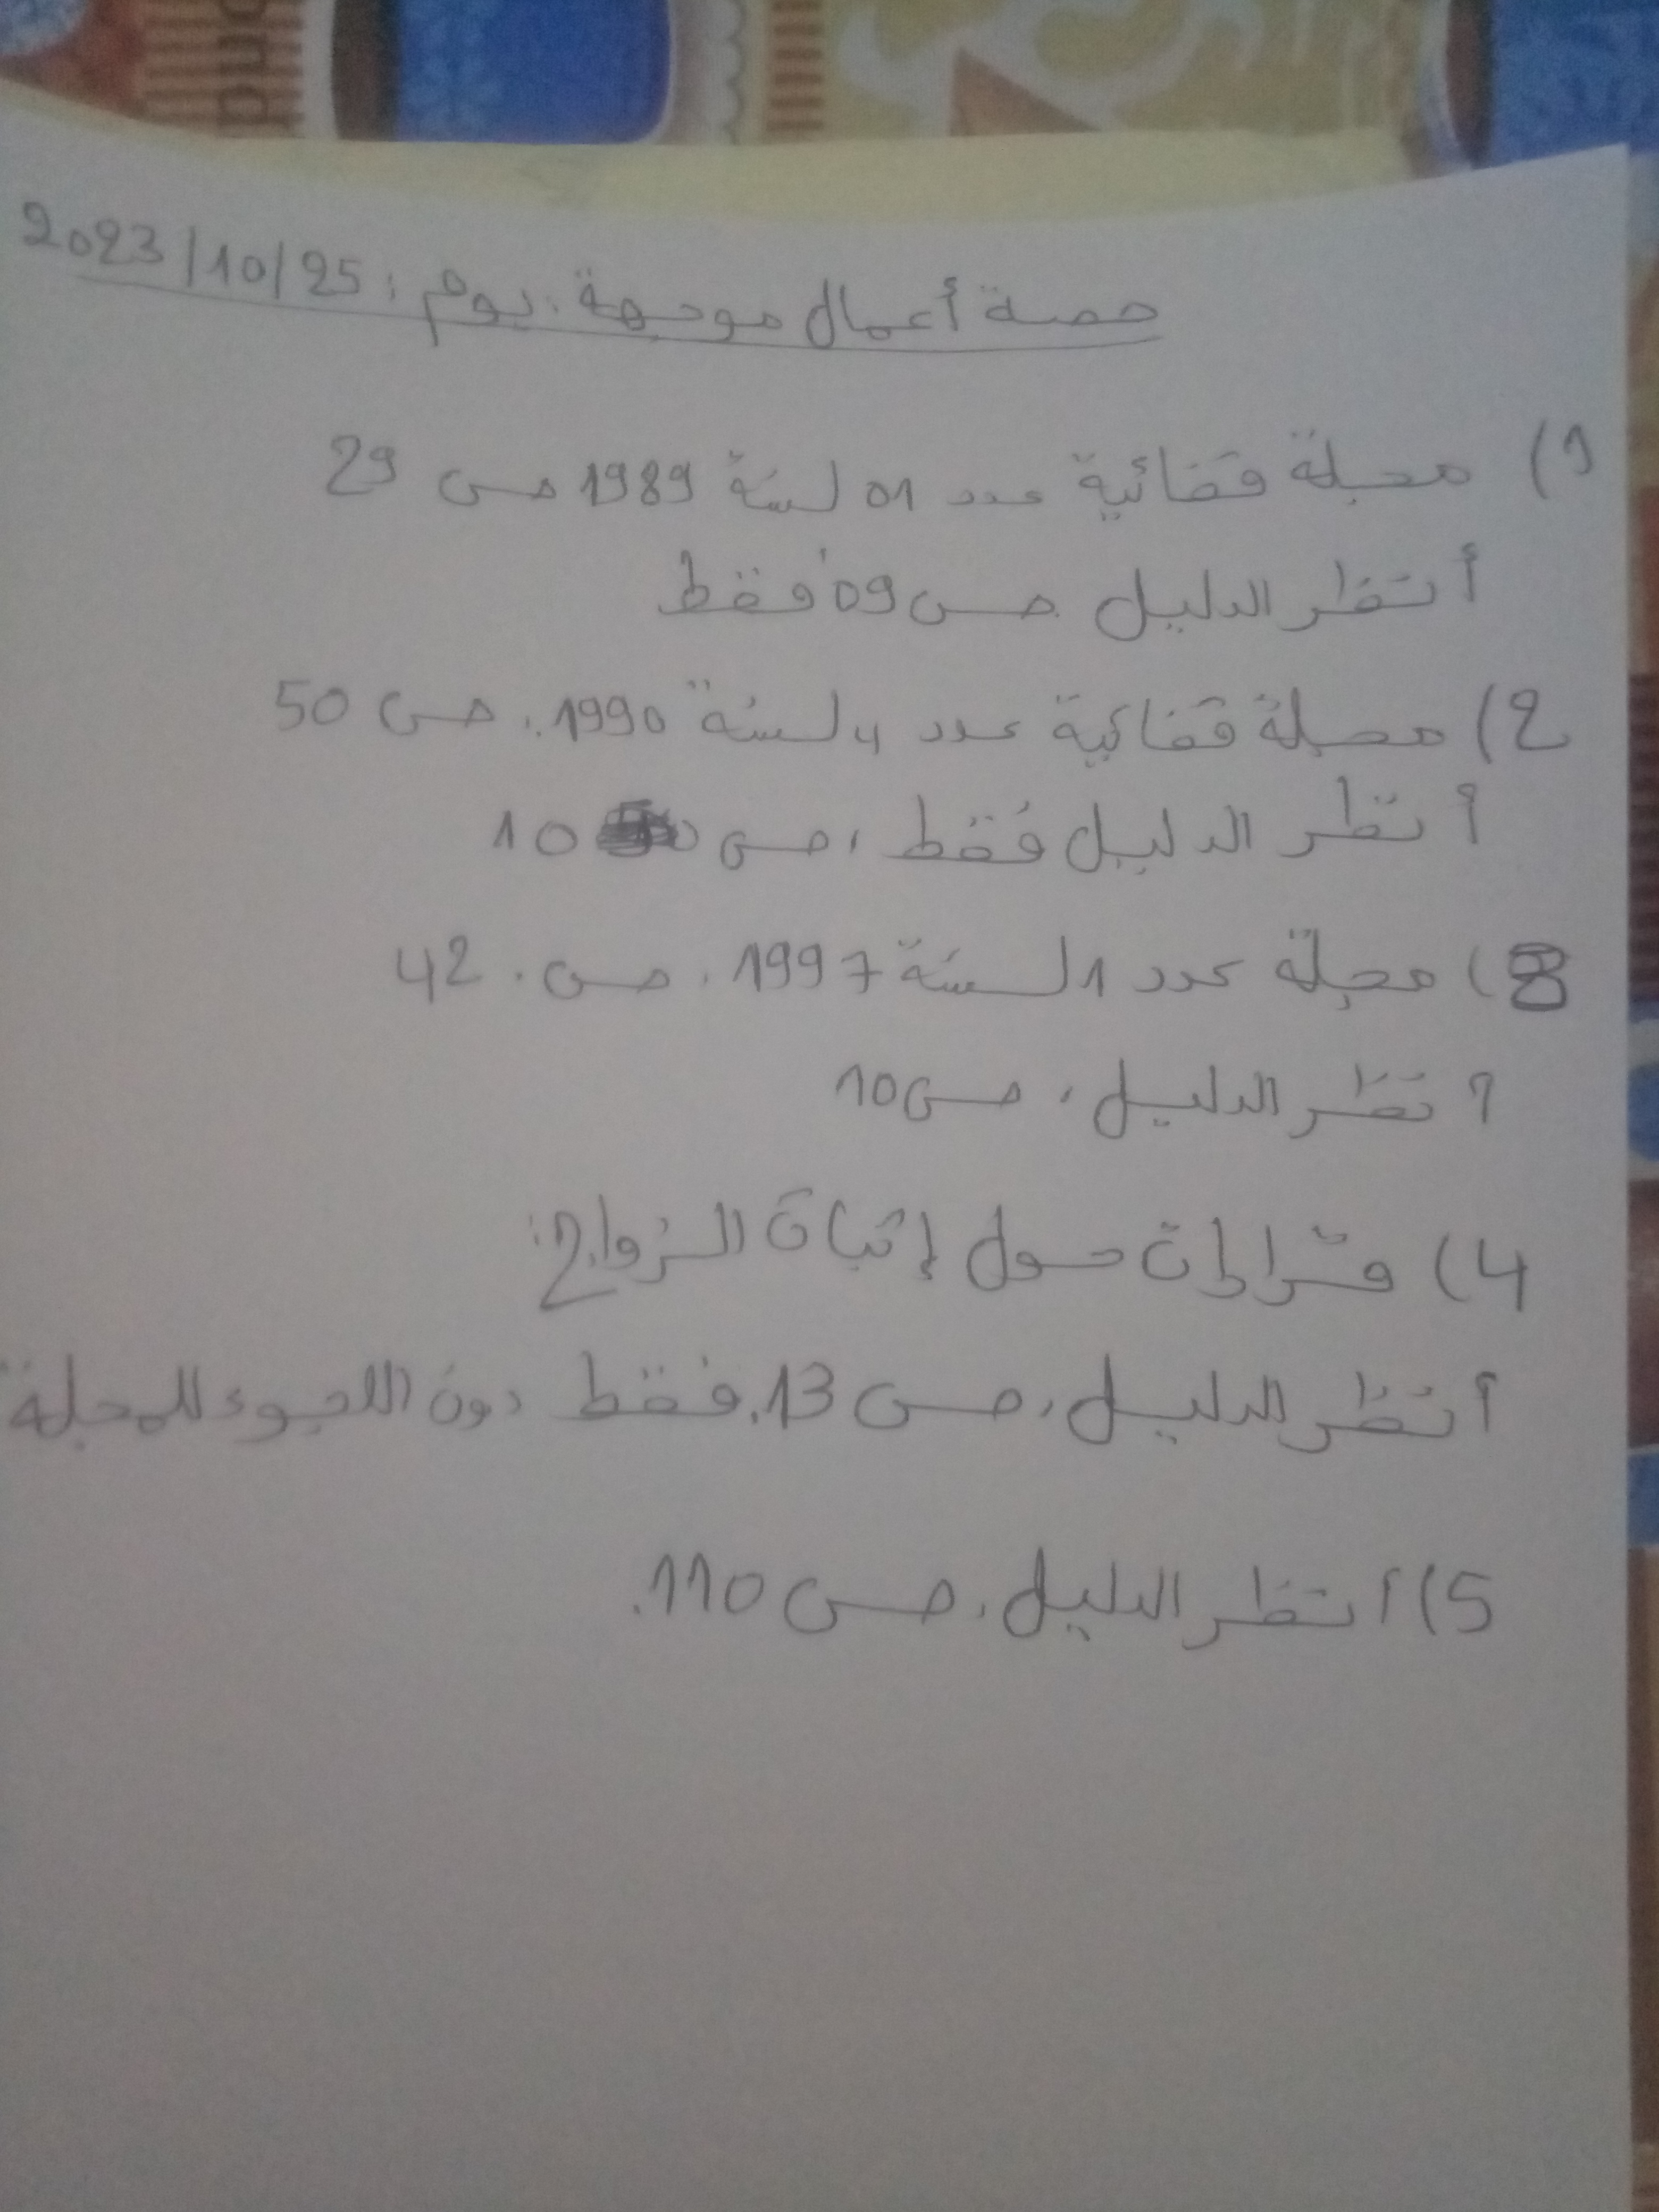 حصة أعمال موجهة. يوم: 2023/10/25
1) مجلة قضائية عدد 01 لسنة 1989 ص 29
أنظر الدليل ص 09 فقط
2) مجلة قضائية عدد 4 لسنة 1990. ص 50
أنظر الدليل فقط، ص 10
3) مجلة عدد 1 لسنة 1997. ص. 42
أنظر الدليل، ص 10
4) قرارات حول إثبات الزواج:
أنظر الدليل، ص 13. فقط دون اللجوء للمجلة
5) أنظر الدليل، ص 110.